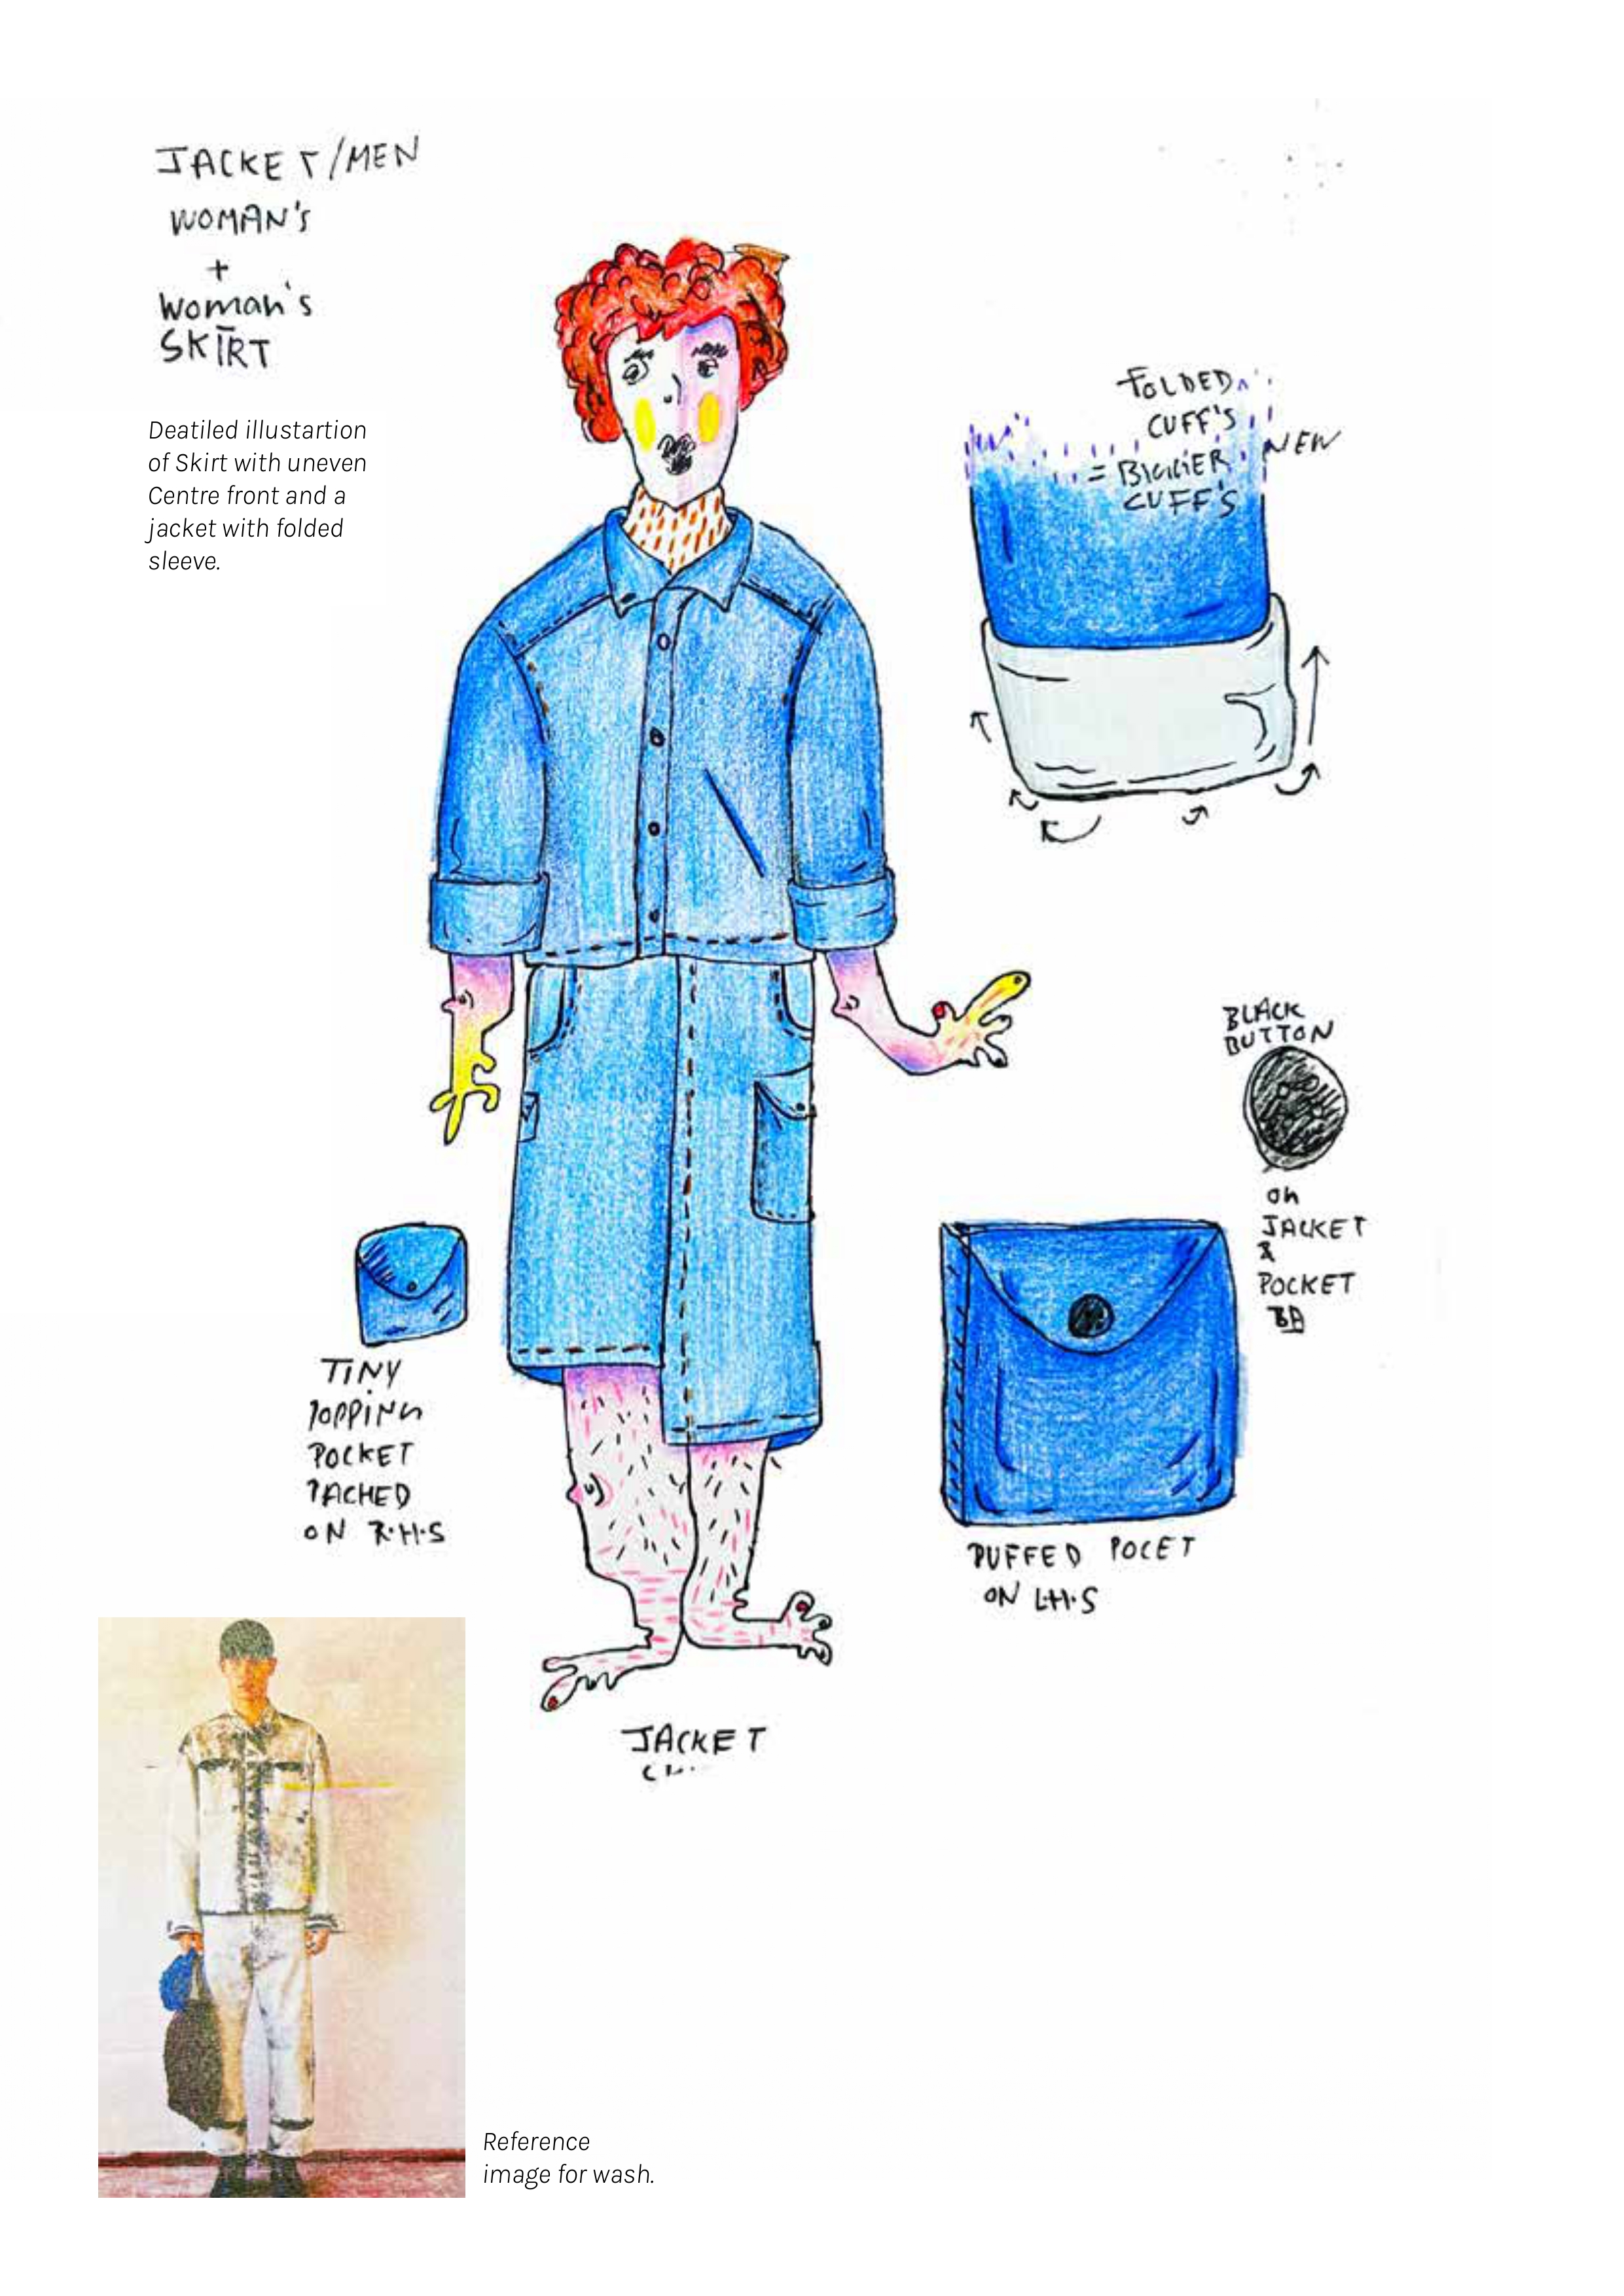 JACKET/MEN
WOMAN'S
+
Woman's
SKIRT
Deatiled illustartion
of Skirt with uneven
Centre front and a
jacket with folded
sleeve.
FOLDED
CUFF'S
NEW
= BIGGIER
CUFF'S
BLACK
BUTTON
on
JACKET
&
POCKET
TINY
POPPING
POCKET
PACHED
ON R.H.S
PUFFED POCET
ON L.H.S
JACKET
Reference
image for wash.